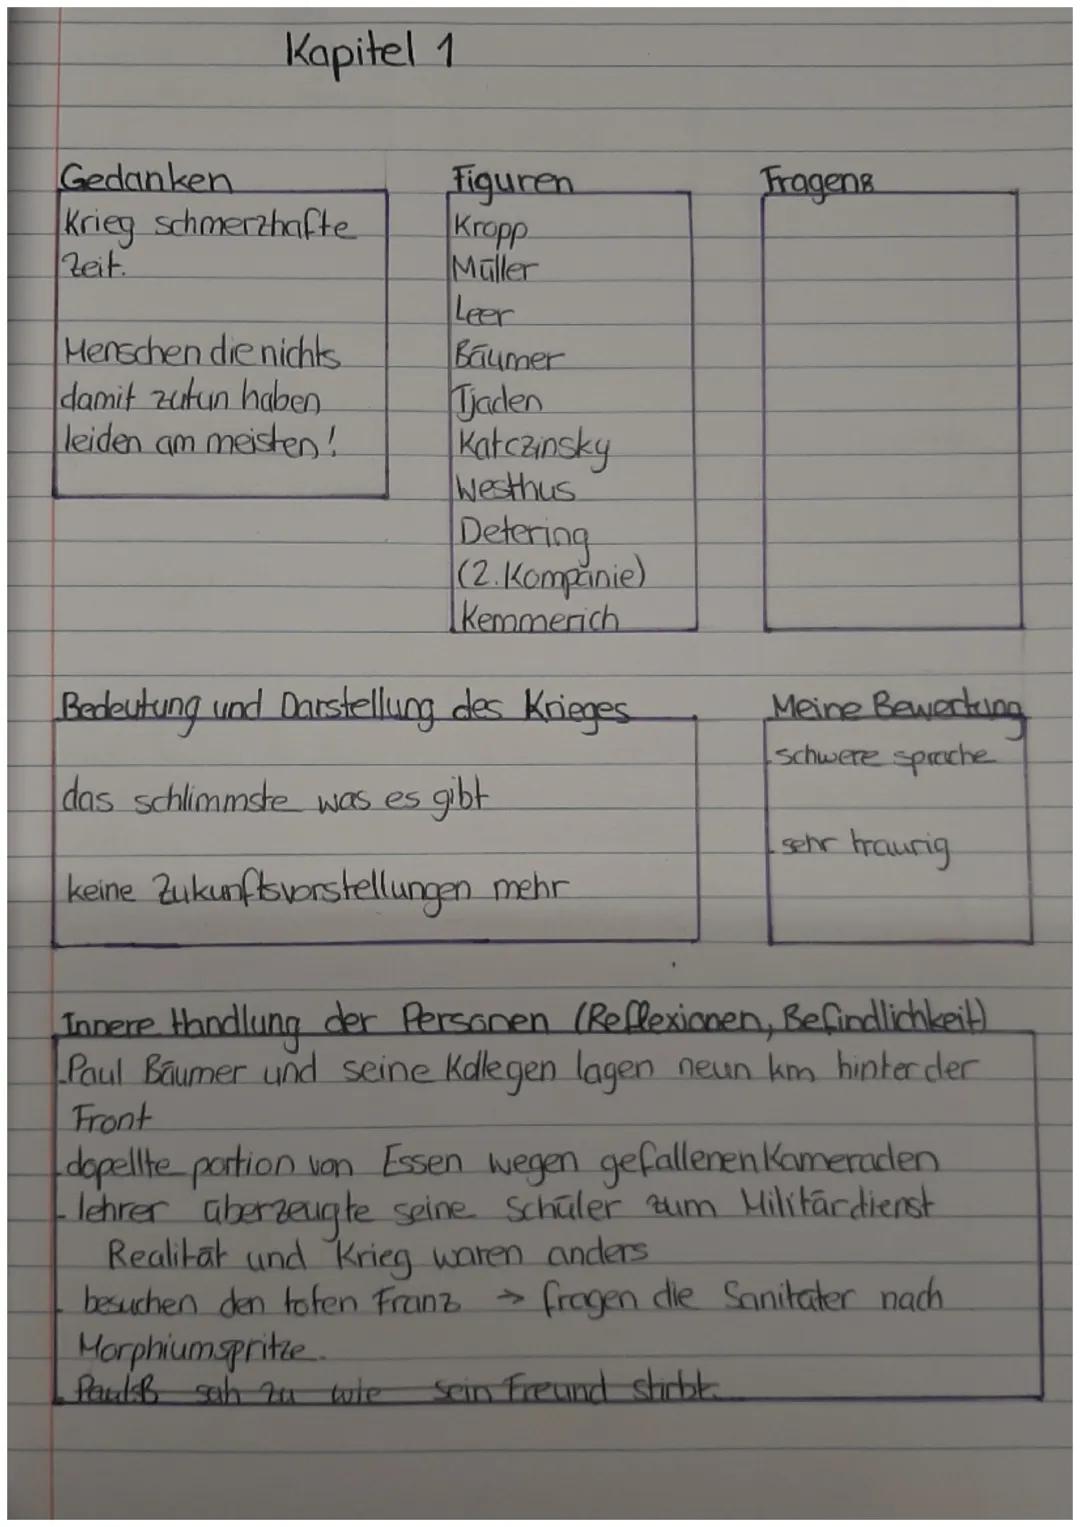 Kapitel 1
Gedanken
Krieg schmerzhafte
Zeit.
Menschen die nichts
damit zutun haben
leiden am meisten!
Figuren
Kropp
Müller
Leer
Bäumer
Tjaden
Katczinsky
Westhus
Detering
(2. Kompanie)
Kemmerich
Fragen:
Bedeutung und Darstellung des Krieges
das schlimmste was es gibt
keine Zukunftsvorstellungen mehr
Meine Bewertung
- schwere sprache
- sehr traurig
Innere Handlung der Personen (Reflexionen, Befindlichkeit)
- Paul Bäumer und seine Kollegen lagen neun km hinter der
Front
- dopellte portion von Essen wegen gefallenen Kameraden
- lehrer überzeugte seine Schüler zum Militärdienst
Realität und Krieg waren anders
- besuchen den toten Franz → fragen die Sanitäter nach
Morphiumspritze.
- Paul.B sah zu wie sein Freund stirbt.